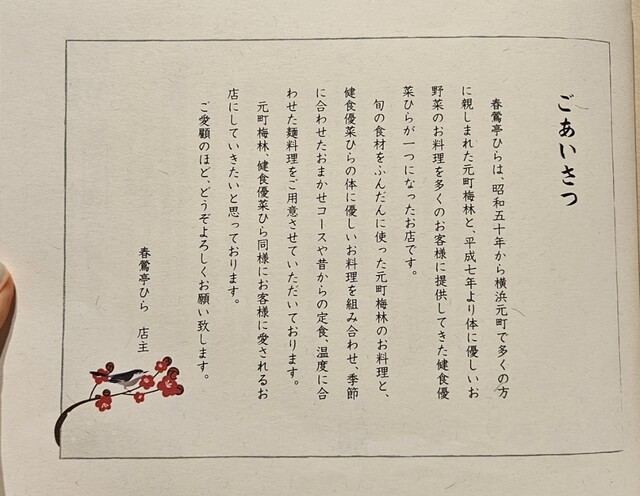 ごあいさつ
春鶯亭ひらは、昭和五十年から横浜元町で多くの方
に親しまれた元町梅林と、平成七年より体に優しいお
野菜のお料理を多くのお客様に提供してきた健食優
菜ひらが一つになったお店です。
旬の食材をふんだんに使った元町梅林のお料理と、
健食優菜ひらの体に優しいお料理を組み合わせ、季節
に合わせたおまかせコースや昔からの定食、温度に合
わせた麺料理をご用意させていただいております。
元町梅林、健食優菜ひら同様にお客様に愛されるお
店にしていきたいと思っております。
ご愛顧のほど、どうぞよろしくお願い致します。
春鶯亭ひら 店主